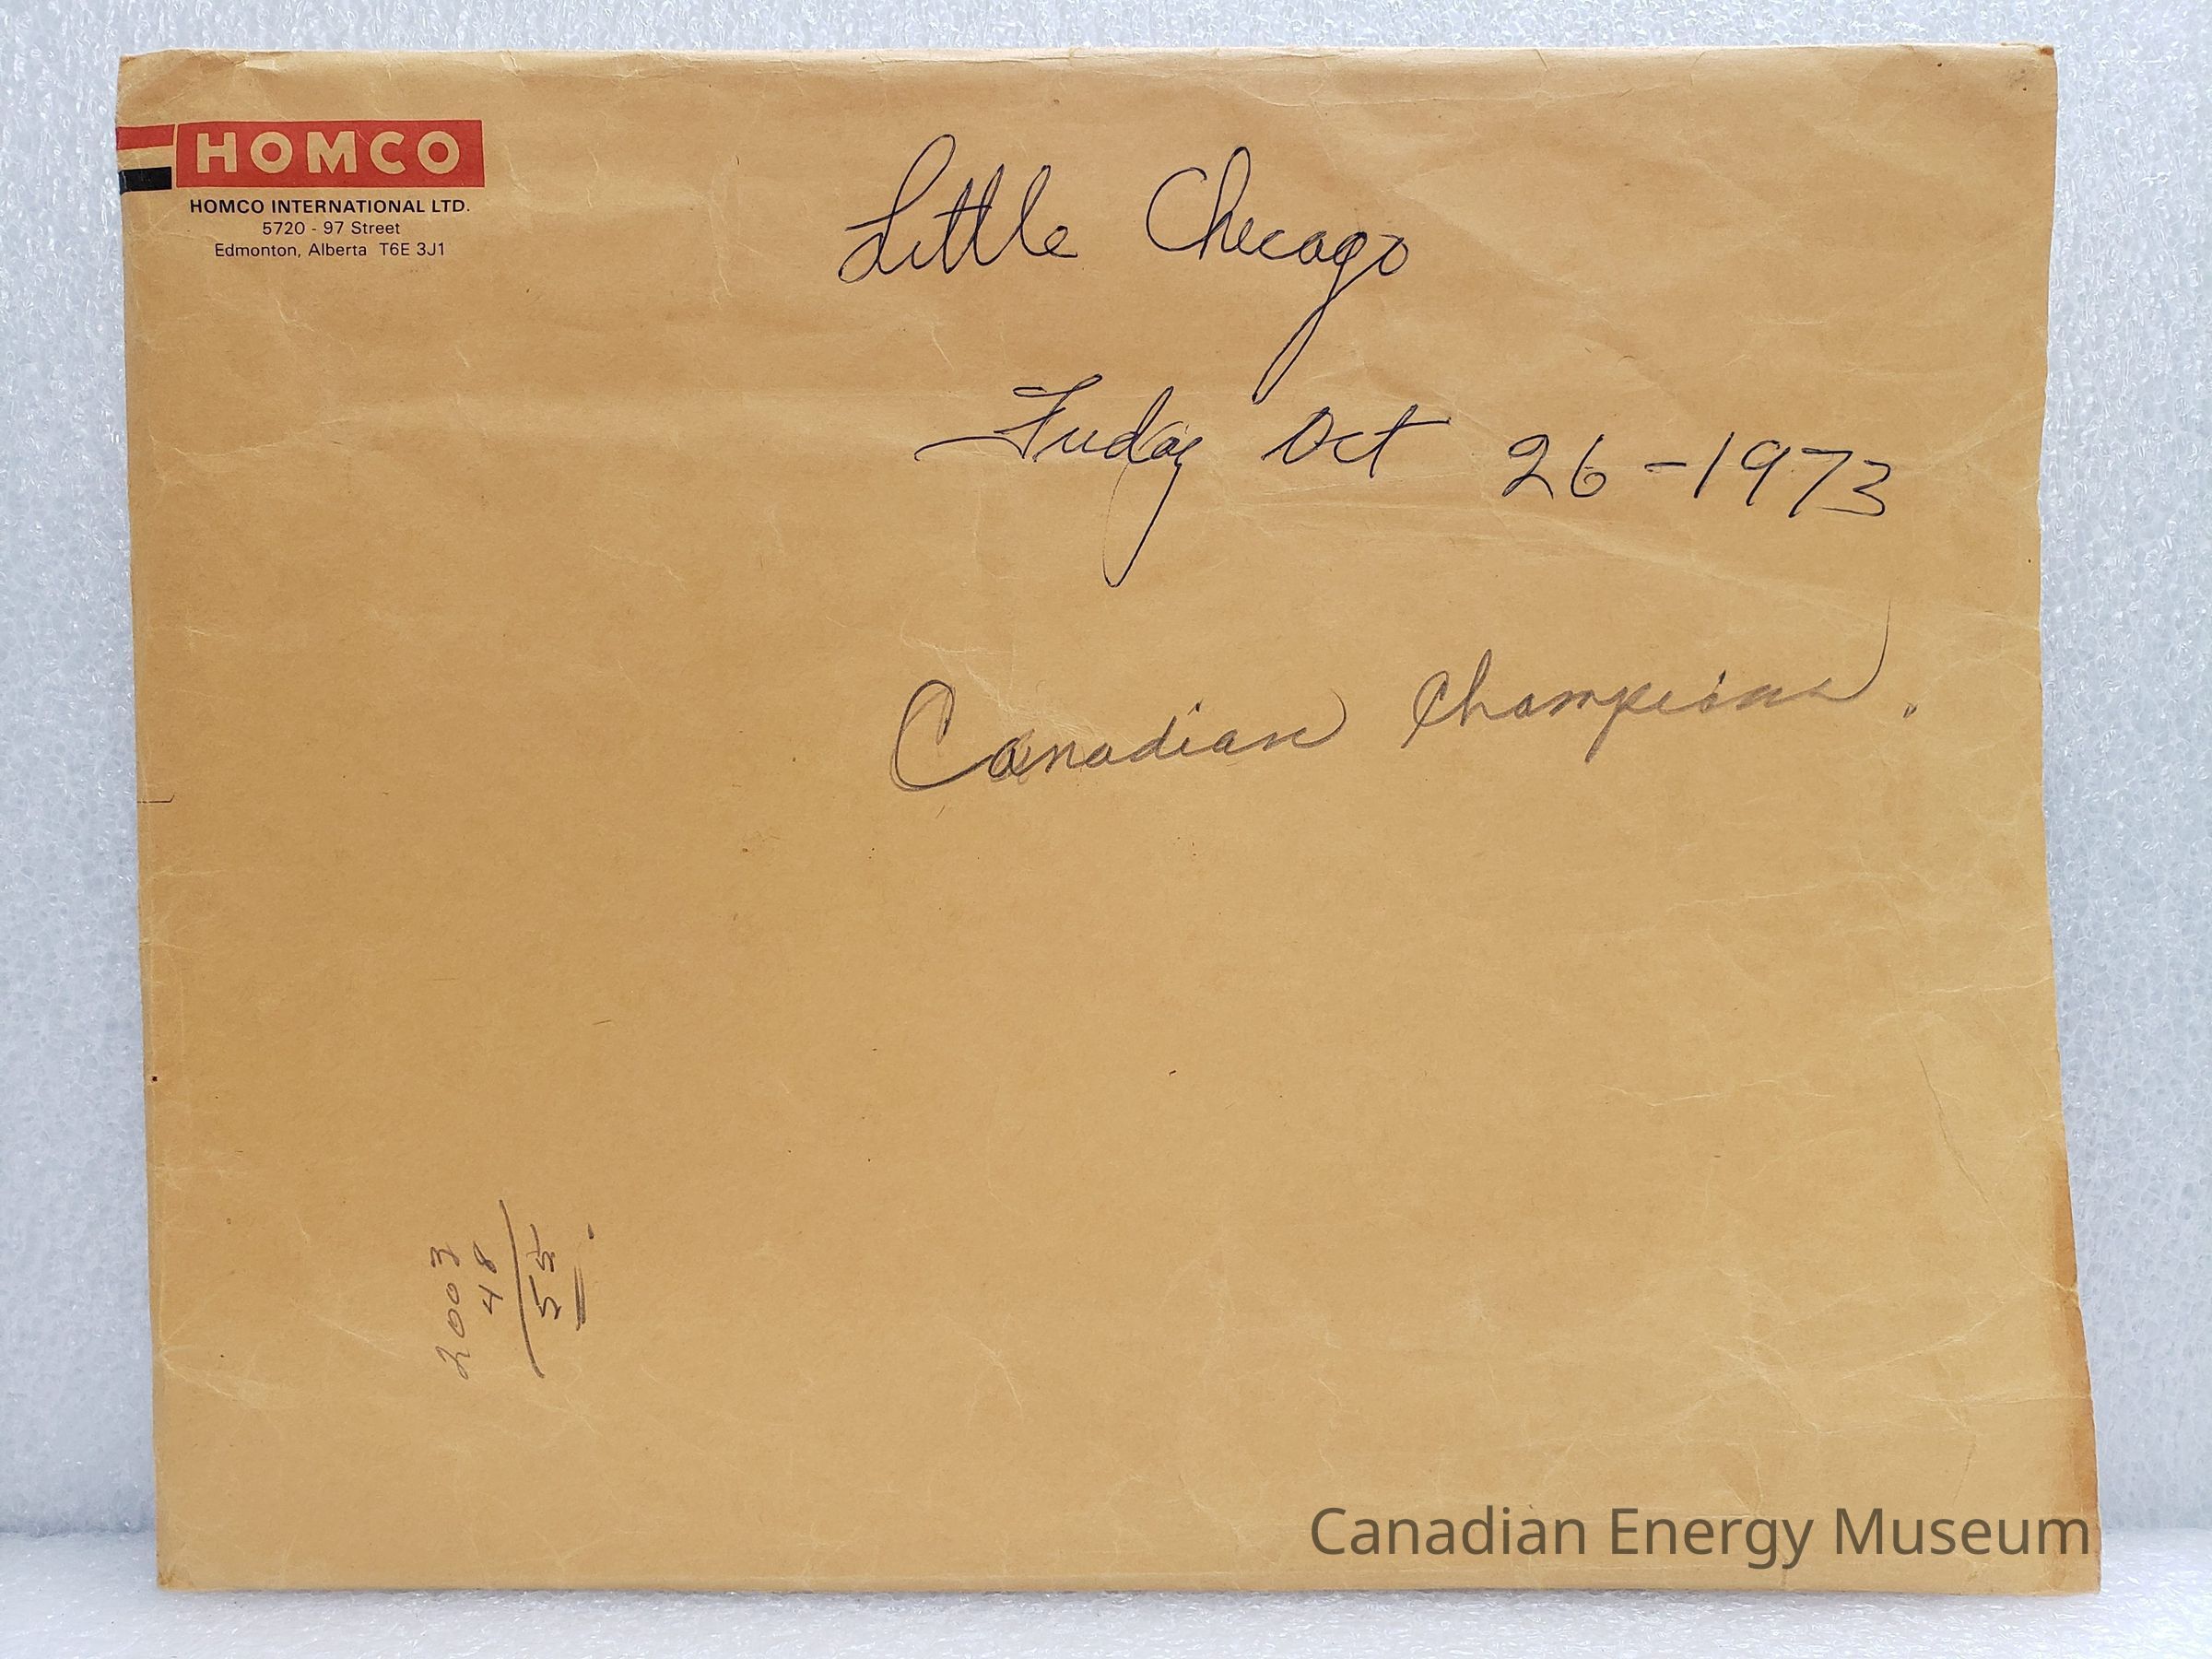 HOMCO
HOMCO INTERNATIONAL LTD.
5720 - 97 Street
Edmonton, Alberta T6E 3J1
Little Checago
Friday Oct 26-1973
Canadian Champions.
2003
48
55
Canadian Energy Museum